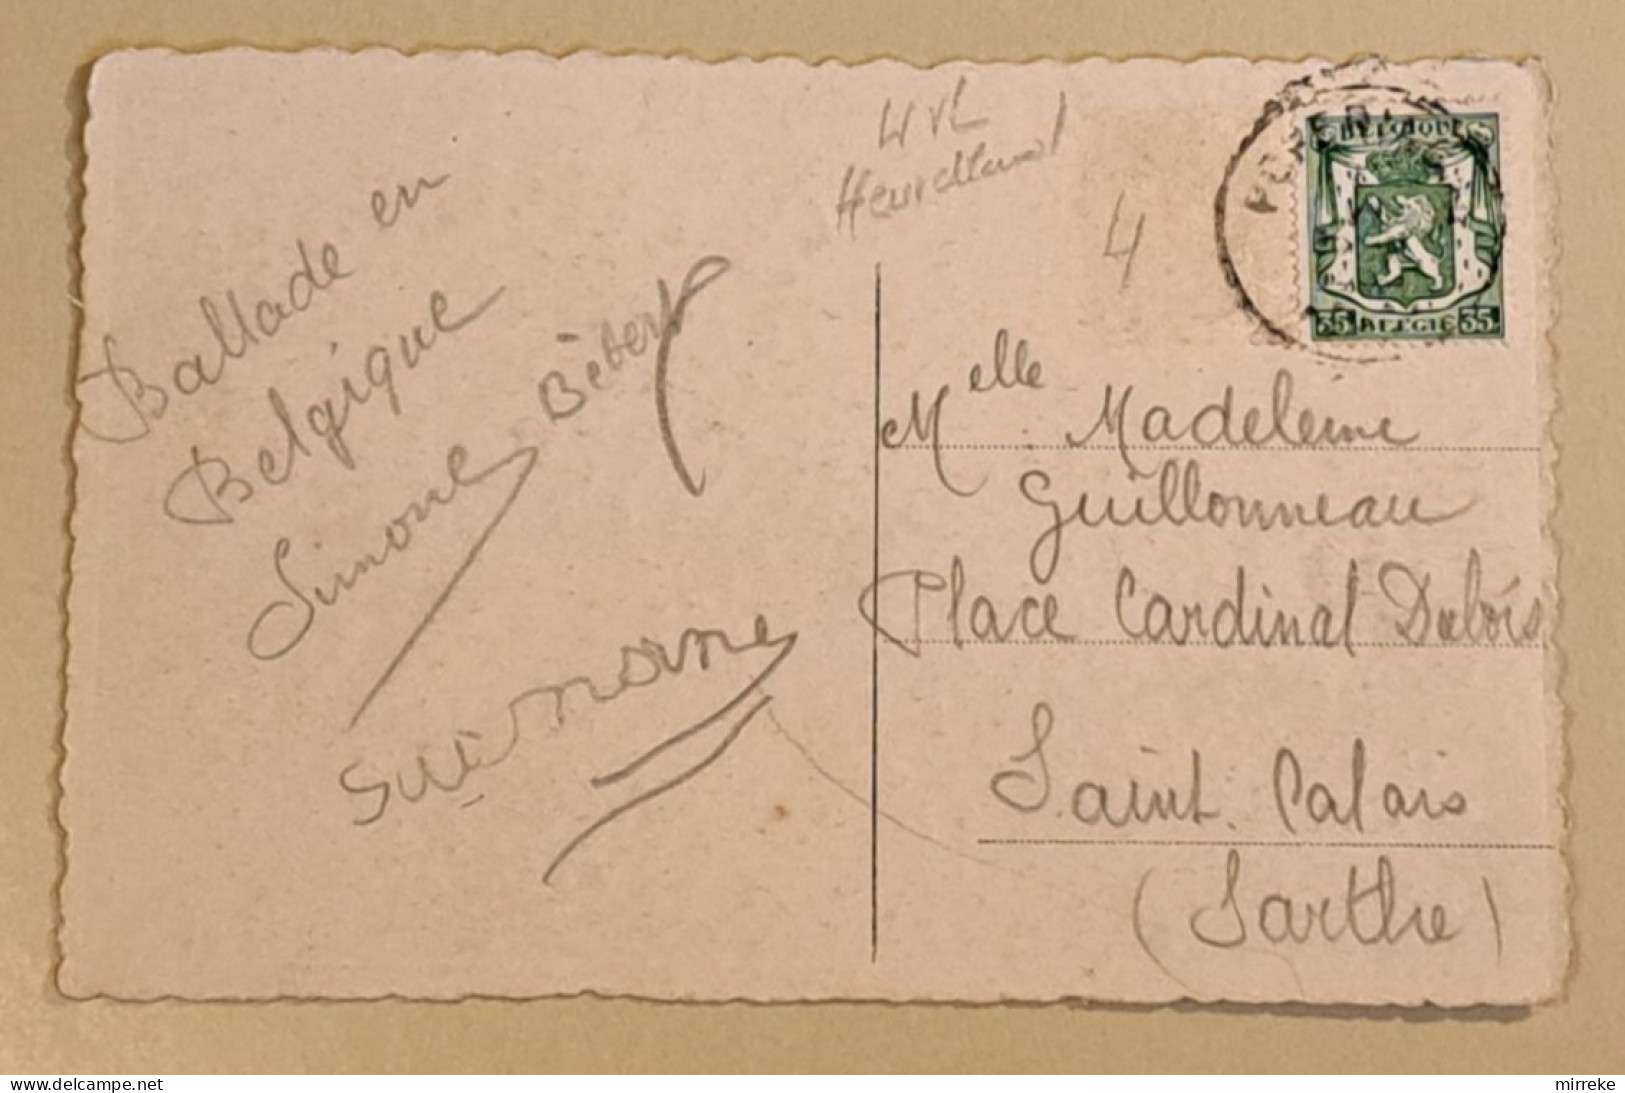 Ballade en
Belgique
Simone Bébert
Suimorne
WVL
Heuvelland
4
BELGIQUE
35 BELGIE 35
Melle Madeleine
Guillonneau
Place Cardinal Dubois
Saint. Calais
(Sarthe)
delcampe.net
mirreke